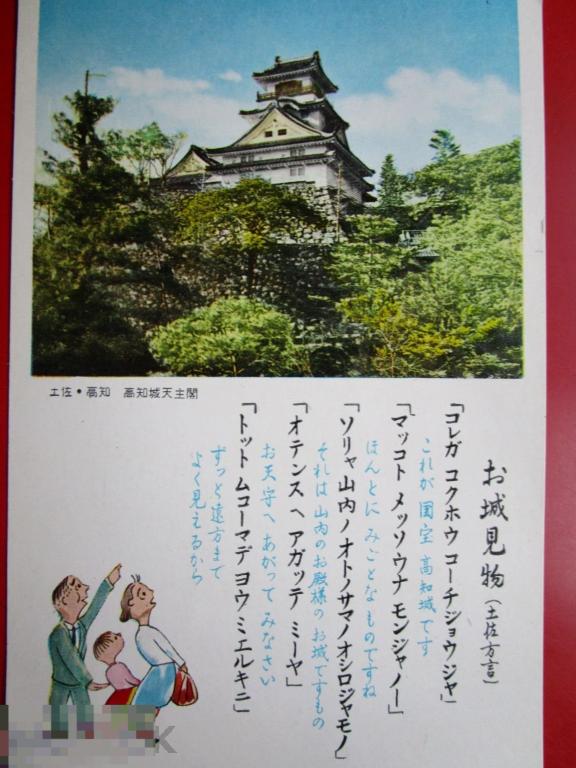 土佐・高知　高知城天主閣
お城見物(土佐方言)
「コレガ コクホウ コーチジョウジャ」
これが 国宝 高知城です
「マッコト メッソウナ モンジャノー」
ほんとに みごとな ものですね
「ソリャ 山内ノ オトノサマノオシロジャモノ」
それは 山内のお殿様の お城ですもの
「オテンス ヘ アガッテ ミーヤ」
お天守へ あがって みなさい
「トット ムコーマデ ヨウ ミエルキニ」
ずっと遠方まで
よく見えるから